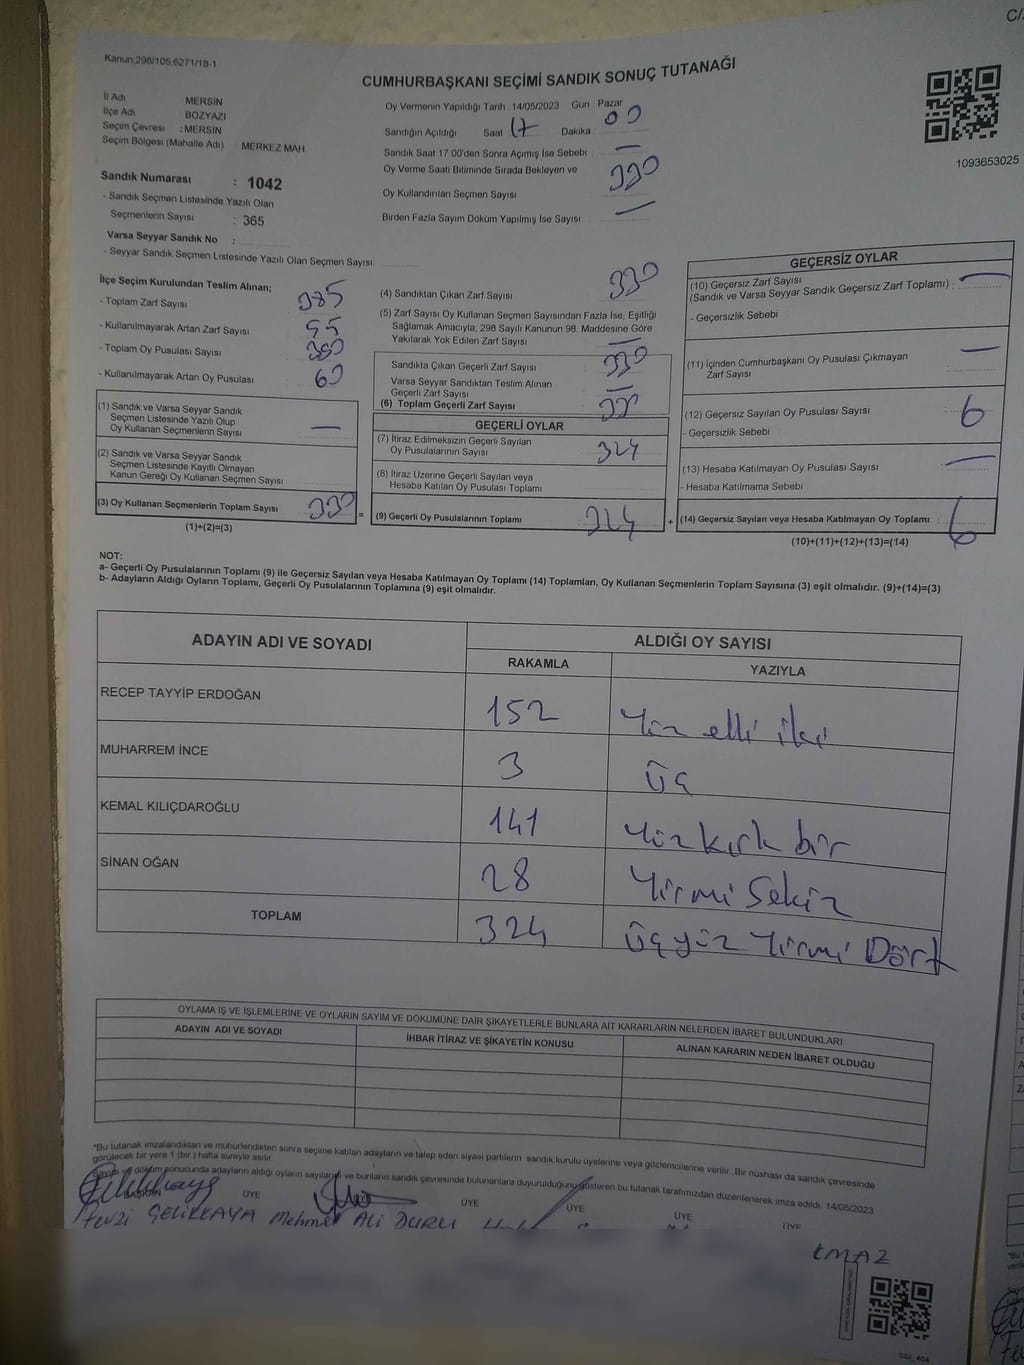 C/
Kanun;298/105,6271/18-1
CUMHURBAŞKANI SEÇİMİ SANDIK SONUÇ TUTANAĞI
İl Adı MERSİN
İlçe Adı BOZYAZI
Seçim Çevresi : MERSİN
Seçim Bölgesi (Mahalle Adı) MERKEZ MAH
Sandık Numarası : 1042
- Sandık Seçmen Listesinde Yazılı Olan
Seçmenlerin Sayısı : 365
Varsa Seyyar Sandık No :
- Seyyar Sandık Seçmen Listesinde Yazılı Olan Seçmen Sayısı
Oy Vermenin Yapıldığı Tarih : 14/05/2023 Gün : Pazar
Sandığın Açıldığı Saat 17 Dakika : 00
Sandık Saat 17 00'den Sonra Açımış İse Sebebi —
Oy Verme Saati Bitiminde Sırada Bekleyen ve
Oy Kullandırılan Seçmen Sayısı 330
Birden Fazla Sayım Döküm Yapılmış İse Sayısı —
1093653025
İlçe Seçim Kurulundan Teslim Alınan;
- Toplam Zarf Sayısı 385
- Kullanılmayarak Artan Zarf Sayısı 55
- Toplam Oy Pusulası Sayısı 380
- Kullanılmayarak Artan Oy Pusulası 60
(1) Sandık ve Varsa Seyyar Sandık
Seçmen Listesinde Yazılı Olup
Oy Kullanan Seçmenlerin Sayısı —
(2) Sandık ve Varsa Seyyar Sandık
Seçmen Listesinde Kayıtlı Olmayan
Kanun Gereği Oy Kullanan Seçmen Sayısı
(3) Oy Kullanan Seçmenlerin Toplam Sayısı 330
(1)+(2)=(3)
=
(4) Sandıktan Çıkan Zarf Sayısı 330
(5) Zarf Sayısı Oy Kullanan Seçmen Sayısından Fazla İse, Eşitliği
Sağlamak Amacıyla, 298 Sayılı Kanunun 98. Maddesine Göre
Yakılarak Yok Edilen Zarf Sayısı —
Sandıkta Çıkan Geçerli Zarf Sayısı 330
Varsa Seyyar Sandıktan Teslim Alınan
Geçerli Zarf Sayısı —
(6) Toplam Geçerli Zarf Sayısı 330
GEÇERLİ OYLAR
(7) İtiraz Edilmeksizin Geçerli Sayılan
Oy Pusulalarının Sayısı 324
(8) İtiraz Üzerine Geçerli Sayılan veya
Hesaba Katılan Oy Pusulası Toplamı
(9) Geçerli Oy Pusulalarının Toplamı 324
+
GEÇERSİZ OYLAR
(10) Geçersiz Zarf Sayısı
(Sandık ve Varsa Seyyar Sandık Geçersiz Zarf Toplamı) : —
- Geçersizlik Sebebi
(11) İçinden Cumhurbaşkanı Oy Pusulası Çıkmayan
Zarf Sayısı —
(12) Geçersiz Sayılan Oy Pusulası Sayısı 6
- Geçersizlik Sebebi
(13) Hesaba Katılmayan Oy Pusulası Sayısı —
- Hesaba Katılmama Sebebi
(14) Geçersiz Sayılan veya Hesaba Katılmayan Oy Toplamı 6
(10)+(11)+(12)+(13)=(14)
NOT:
a- Geçerli Oy Pusulalarının Toplamı (9) ile Geçersiz Sayılan veya Hesaba Katılmayan Oy Toplamı (14) Toplamları, Oy Kullanan Seçmenlerin Toplam Sayısına (3) eşit olmalıdır. (9)+(14)=(3)
b- Adayların Aldığı Oyların Toplamı, Geçerli Oy Pusulalarının Toplamına (9) eşit olmalıdır.
ADAYIN ADI VE SOYADI ALDIĞI OY SAYISI
RAKAMLA YAZIYLA
RECEP TAYYİP ERDOĞAN 152 Yüz elli iki
MUHARREM İNCE 3 Üç
KEMAL KILIÇDAROĞLU 141 Yüz kırk bir
SİNAN OĞAN 28 Yirmi Sekiz
TOPLAM 324 Üçyüz Yirmi Dört
OYLAMA İŞ VE İŞLEMLERİNE VE OYLARIN SAYIM VE DÖKÜMÜNE DAİR ŞİKAYETLERLE BUNLARA AİT KARARLARIN NELERDEN İBARET BULUNDUKLARI
ADAYIN ADI VE SOYADI İHBAR İTİRAZ VE ŞİKAYETİN KONUSU ALINAN KARARIN NEDEN İBARET OLDUĞU
*Bu tutanak imzalandıktan ve mühürlendikten sonra seçime katılan adayların ve talep eden siyasi partilerin sandık kurulu üyelerine veya gözlemcilerine verilir. Bir nüshası da sandık çevresinde
görülecek bir yere 1 (bir) hafta süreyle asılır.
Sayım ve döküm sonucunda adayların aldığı oyların sayıları ve bunların sandık çevresinde bulunanlara duyurulduğunu gösteren bu tutanak tarafımızdan düzenlenerek imza edildi. 14/05/2023
BAŞKAN ÜYE ÜYE ÜYE ÜYE ÜYE
Fevzi ÇELİKKAYA Mehmet ALİ DURU